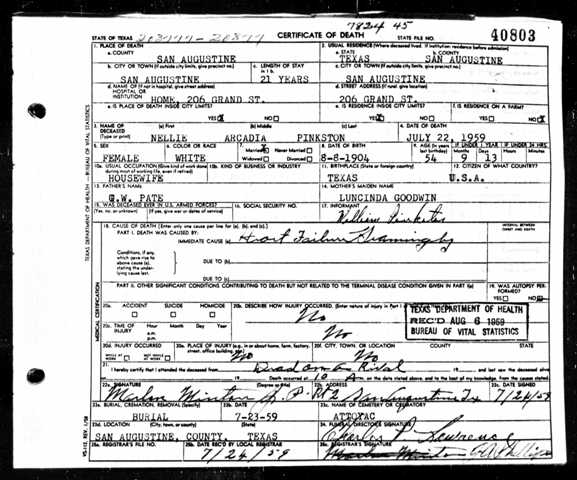 7824 45
STATE OF TEXAS 20899-20899 CERTIFICATE OF DEATH STATE FILE NO. 40803
1. PLACE OF DEATH
a. COUNTY
SAN AUGUSTINE
2. USUAL RESIDENCE (Where deceased lived. If institution: residence before admission)
a. STATE b. COUNTY
TEXAS SAN AUGUSTINE
b. CITY OR TOWN (If outside city limits, give precinct no.) c. LENGTH OF STAY in 1 b
SAN AUGUSTINE 21 YEARS
c. CITY OR TOWN (If outside city limits, give precinct no.)
SAN AUGUSTINE
d. NAME OF (If not in hospital, give street address) HOSPITAL OR INSTITUTION
HOME, 206 GRAND ST.
d. STREET ADDRESS (If rural, give location)
206 GRAND ST.
e. IS PLACE OF DEATH INSIDE CITY LIMITS?
YES X NO
e. IS RESIDENCE INSIDE CITY LIMITS?
YES X NO
f. IS RESIDENCE ON A FARM?
YES NO X
3. NAME OF DECEASED (Type or print) (a) First (b) Middle (c) Last
NELLIE ARCADIA PINKSTON
4. DATE OF DEATH
JULY 22, 1959
5. SEX
FEMALE
6. COLOR OR RACE
WHITE
7. Married X Never Married
Widowed Divorced
8. DATE OF BIRTH
8-8-1904
9. AGE (In years last birthday)
54
IF UNDER 1 YEAR IF UNDER 24 HRS
Months Days Hours Minutes
9 13
10a. USUAL OCCUPATION (Give kind of work done during most of working life, even if retired)
HOUSEWIFE
10b. KIND OF BUSINESS OR INDUSTRY
11. BIRTHPLACE (State or foreign country)
TEXAS
12. CITIZEN OF WHAT COUNTRY?
U.S.A.
13. FATHER'S NAME
G.W. PATE
14. MOTHER'S MAIDEN NAME
LUNCINDA GOODWIN
15. WAS DECEASED EVER IN U.S. ARMED FORCES?
(Yes, no, or unknown) (If yes, give war or dates of service)
16. SOCIAL SECURITY NO.
17. INFORMANT
18. CAUSE OF DEATH [Enter only one cause per line for (a), (b), and (c).]
INTERVAL BETWEEN ONSET AND DEATH
PART I. DEATH WAS CAUSED BY:
IMMEDIATE CAUSE (a) Heart Failure
Conditions, if any, which gave rise to above cause (a), stating the underlying cause last.
DUE TO (b)
DUE TO (c)
PART II. OTHER SIGNIFICANT CONDITIONS CONTRIBUTING TO DEATH BUT NOT RELATED TO THE TERMINAL DISEASE CONDITION GIVEN IN PART I(a)
19. WAS AUTOPSY PERFORMED?
YES NO
20a. ACCIDENT SUICIDE HOMICIDE
20b. DESCRIBE HOW INJURY OCCURRED. (Enter nature of injury in Part I
No
TEXAS DEPARTMENT OF HEALTH
REC'D AUG 6 1959
BUREAU OF VITAL STATISTICS
20c. TIME OF INJURY Hour Month Day Year
a.m.
p.m.
No
20d. INJURY OCCURRED
WHILE AT WORK NOT WHILE AT WORK
20e. PLACE OF INJURY (e.g., in or about home, farm, factory, street, office building, etc.)
No
20f. CITY, TOWN, OR LOCATION COUNTY STATE
No
21. I hereby certify that I attended the deceased from 19 and last saw the deceased alive
Death occurred at 10 A m.
22a. SIGNATURE (Degree or title)
J. P.
22b. ADDRESS
Rt 2 San Augustine Tx
22c. DATE SIGNED
7/24/59
23a. BURIAL, CREMATION, REMOVAL (Specify)
BURIAL
23b. DATE
7-23-59
23c. NAME OF CEMETERY OR CREMATORY
ATTOYAC
23d. LOCATION (City, town, or county) (State)
SAN AUGUSTINE, COUNTY, TEXAS
24. FUNERAL DIRECTOR'S SIGNATURE
Lawrence
25a. REGISTRAR'S FILE NO.
25b. DATE REC'D BY LOCAL REGISTRAR
7/24/59
25c. REGISTRAR'S SIGNATURE
TEXAS DEPARTMENT OF HEALTH—BUREAU OF VITAL STATISTICS
MEDICAL CERTIFICATION